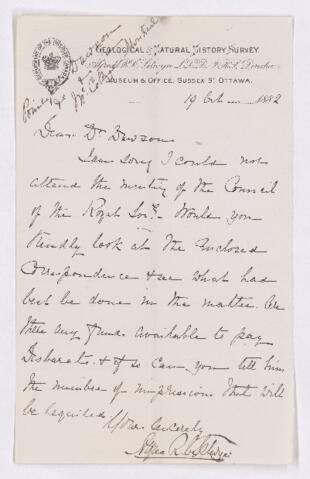 GEOLOGICAL & NATURAL HISTORY SURVEY
Alfred R. C. Selwyn L.L.D. F.R.S. Director
MUSEUM & OFFICE, SUSSEX ST OTTAWA.
Principal Dawson
McGill Montreal
19 Octr 1882
Dear Dr Dawson
I am sorry I could not
attend the meeting of the Council
of the Royal Socy. Would you
kindly look at the Enclosed
Correspondence & see what had
best be done in the matter. Are
there any funds available to pay
Disbarats. & if so can you tell him
the number of impressions that will
be required
Yours sincerely
Alfred R C Selwyn